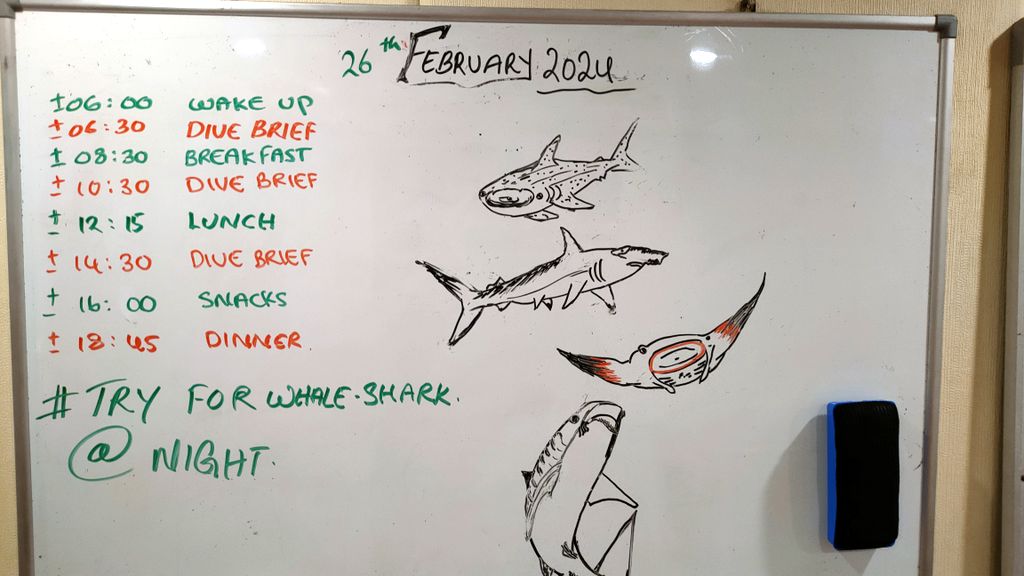 26th February 2024
±06:00 WAKE UP
± 06:30 DIVE BRIEF
± 08:30 BREAKFAST
± 10:30 DIVE BRIEF
± 12:15 LUNCH
± 14:30 DIVE BRIEF
± 16:00 SNACKS
± 18:45 DINNER
# TRY FOR WHALE-SHARK.
@ NIGHT.